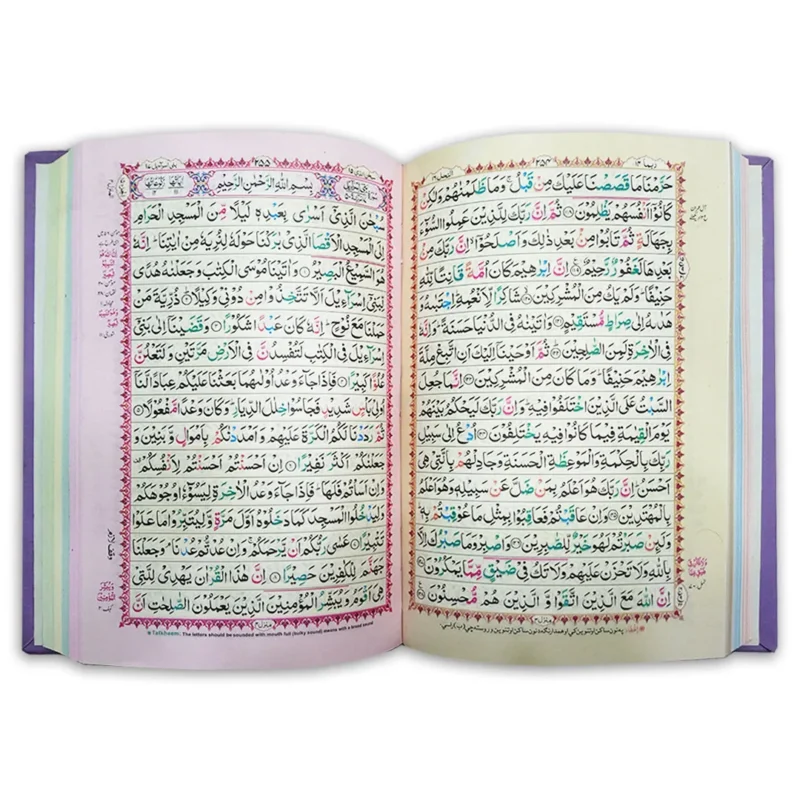 ٢٥٤
ربما ١٤
النحل ١٦
حَرَّمْنَا مَا قَصَصْنَا عَلَيْكَ مِنْ قَبْلُ ۚ وَمَا ظَلَمْنٰهُمْ وَلٰكِنْ
كَانُوْۤا اَنْفُسَهُمْ يَظْلِمُوْنَ ۝ ثُمَّ اِنَّ رَبَّكَ لِلَّذِيْنَ عَمِلُوا السُّوْٓءَ
بِجَهَالَةٍ ثُمَّ تَابُوْا مِنْۢ بَعْدِ ذٰلِكَ وَاَصْلَحُوْۤا ۙ اِنَّ رَبَّكَ مِنْۢ
بَعْدِهَا لَغَفُوْرٌ رَّحِيْمٌ ۝ اِنَّ اِبْرٰهِيْمَ كَانَ اُمَّةً قَانِتًا لِّلّٰهِ
حَنِيْفًا ؕ وَلَمْ يَكُ مِنَ الْمُشْرِكِيْنَ ۝ شَاكِرًا لِّاَنْعُمِهٖ ؕ اِجْتَبٰىهُ وَ
هَدٰىهُ اِلٰى صِرَاطٍ مُّسْتَقِيْمٍ ۝ وَاٰتَيْنٰهُ فِى الدُّنْيَا حَسَنَةً ؕ وَاِنَّهٗ
فِى الْاٰخِرَةِ لَمِنَ الصّٰلِحِيْنَ ۝ ثُمَّ اَوْحَيْنَاۤ اِلَيْكَ اَنِ اتَّبِعْ مِلَّةَ
اِبْرٰهِيْمَ حَنِيْفًا ؕ وَمَا كَانَ مِنَ الْمُشْرِكِيْنَ ۝ اِنَّمَا جُعِلَ
السَّبْتُ عَلَى الَّذِيْنَ اخْتَلَفُوْا فِيْهِ ؕ وَاِنَّ رَبَّكَ لَيَحْكُمُ بَيْنَهُمْ
يَوْمَ الْقِيٰمَةِ فِيْمَا كَانُوْا فِيْهِ يَخْتَلِفُوْنَ ۝ اُدْعُ اِلٰى سَبِيْلِ
رَبِّكَ بِالْحِكْمَةِ وَالْمَوْعِظَةِ الْحَسَنَةِ وَجَادِلْهُمْ بِالَّتِيْ هِىَ
اَحْسَنُ ؕ اِنَّ رَبَّكَ هُوَ اَعْلَمُ بِمَنْ ضَلَّ عَنْ سَبِيْلِهٖ وَهُوَ اَعْلَمُ
بِالْمُهْتَدِيْنَ ۝ وَاِنْ عَاقَبْتُمْ فَعَاقِبُوْا بِمِثْلِ مَا عُوْقِبْتُمْ بِهٖ ؕ
وَلَئِنْ صَبَرْتُمْ لَهُوَ خَيْرٌ لِّلصّٰبِرِيْنَ ۝ وَاصْبِرْ وَمَا صَبْرُكَ اِلَّا
بِاللّٰهِ وَلَا تَحْزَنْ عَلَيْهِمْ وَلَا تَكُ فِيْ ضَيْقٍ مِّمَّا يَمْكُرُوْنَ ۝
اِنَّ اللّٰهَ مَعَ الَّذِيْنَ اتَّقَوْا وَّالَّذِيْنَ هُمْ مُّحْسِنُوْنَ ۝
منزل ٣
٢٥٥
بِسْمِ اللّٰهِ الرَّحْمٰنِ الرَّحِيْمِ
سُبْحٰنَ الَّذِيْۤ اَسْرٰى بِعَبْدِهٖ لَيْلًا مِّنَ الْمَسْجِدِ الْحَرَامِ
اِلَى الْمَسْجِدِ الْاَقْصَا الَّذِيْ بٰرَكْنَا حَوْلَهٗ لِنُرِيَهٗ مِنْ اٰيٰتِنَا ؕ اِنَّهٗ
هُوَ السَّمِيْعُ الْبَصِيْرُ ۝ وَاٰتَيْنَا مُوْسَى الْكِتٰبَ وَجَعَلْنٰهُ هُدًى
لِّبَنِيْۤ اِسْرَآءِيْلَ اَلَّا تَتَّخِذُوْا مِنْ دُوْنِيْ وَكِيْلًا ۝ ذُرِّيَّةَ مَنْ
حَمَلْنَا مَعَ نُوْحٍ ؕ اِنَّهٗ كَانَ عَبْدًا شَكُوْرًا ۝ وَقَضَيْنَاۤ اِلٰى بَنِيْۤ
اِسْرَآءِيْلَ فِى الْكِتٰبِ لَتُفْسِدُنَّ فِى الْاَرْضِ مَرَّتَيْنِ وَلَتَعْلُنَّ
عُلُوًّا كَبِيْرًا ۝ فَاِذَا جَآءَ وَعْدُ اُوْلٰىهُمَا بَعَثْنَا عَلَيْكُمْ عِبَادًا لَّنَاۤ
اُولِيْ بَاْسٍ شَدِيْدٍ فَجَاسُوْا خِلٰلَ الدِّيَارِ ؕ وَكَانَ وَعْدًا مَّفْعُوْلًا ۝
ثُمَّ رَدَدْنَا لَكُمُ الْكَرَّةَ عَلَيْهِمْ وَاَمْدَدْنٰكُمْ بِاَمْوَالٍ وَّبَنِيْنَ وَ
جَعَلْنٰكُمْ اَكْثَرَ نَفِيْرًا ۝ اِنْ اَحْسَنْتُمْ اَحْسَنْتُمْ لِاَنْفُسِكُمْ
وَاِنْ اَسَاْتُمْ فَلَهَا ؕ فَاِذَا جَآءَ وَعْدُ الْاٰخِرَةِ لِيَسُوْٓءٗا وُجُوْهَكُمْ
وَلِيَدْخُلُوا الْمَسْجِدَ كَمَا دَخَلُوْهُ اَوَّلَ مَرَّةٍ وَّلِيُتَبِّرُوْا مَا عَلَوْا
تَتْبِيْرًا ۝ عَسٰى رَبُّكُمْ اَنْ يَّرْحَمَكُمْ ۚ وَاِنْ عُدْتُّمْ عُدْنَا ۘ وَجَعَلْنَا
جَهَنَّمَ لِلْكٰفِرِيْنَ حَصِيْرًا ۝ اِنَّ هٰذَا الْقُرْاٰنَ يَهْدِيْ لِلَّتِيْ
هِىَ اَقْوَمُ وَيُبَشِّرُ الْمُؤْمِنِيْنَ الَّذِيْنَ يَعْمَلُوْنَ الصّٰلِحٰتِ اَنَّ
منزل ٤
Tafkheem: The letters should be sounded with mouth full (bulky sound) awons with a broad sound